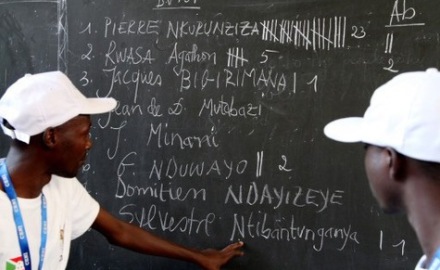 Ab
1. PIERRE NKURUNZIZA 23
2. RWASA Agathon 5
3. Jacques BIGIRIMANA 1
Jean de D. Mutabazi
J. Minani
G. NDUWAYO 2
Domitien NDAYIZEYE
Sylvestre Ntibantunganya
2
1